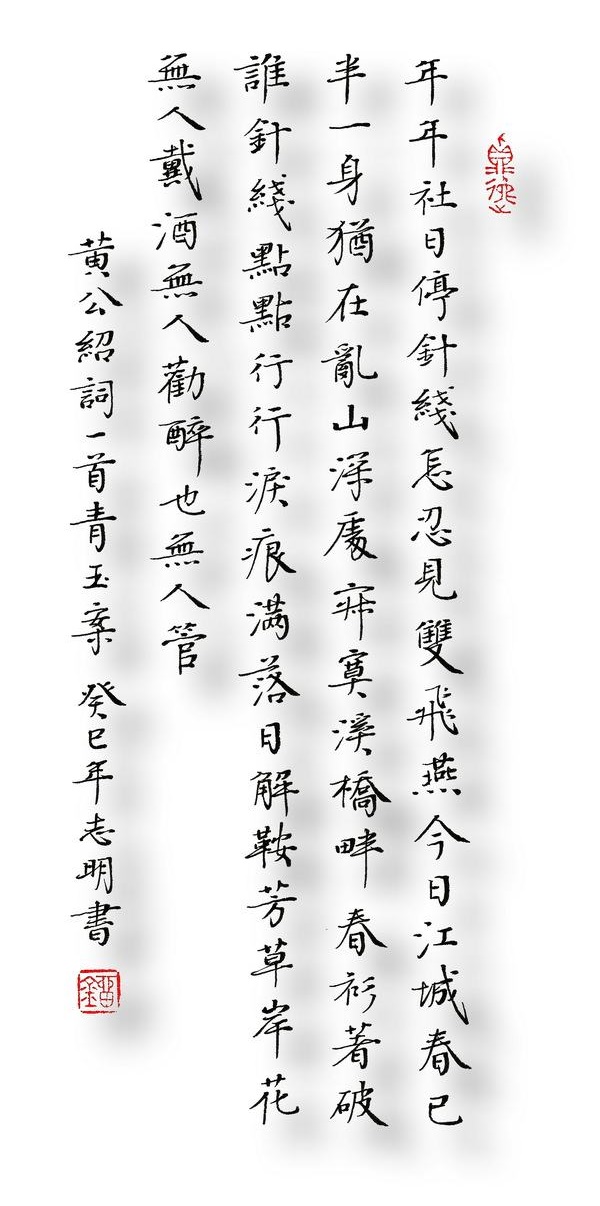 年年社日停針綫怎忍見雙飛燕今日江城春已
半一身猶在亂山深處寂寞溪橋畔春衫著破
誰針綫點點行行淚痕满落日解鞍芳草岸花
無人戴酒無人勸醉也無人管
黄公紹詞一首青玉案 癸巳年志明書